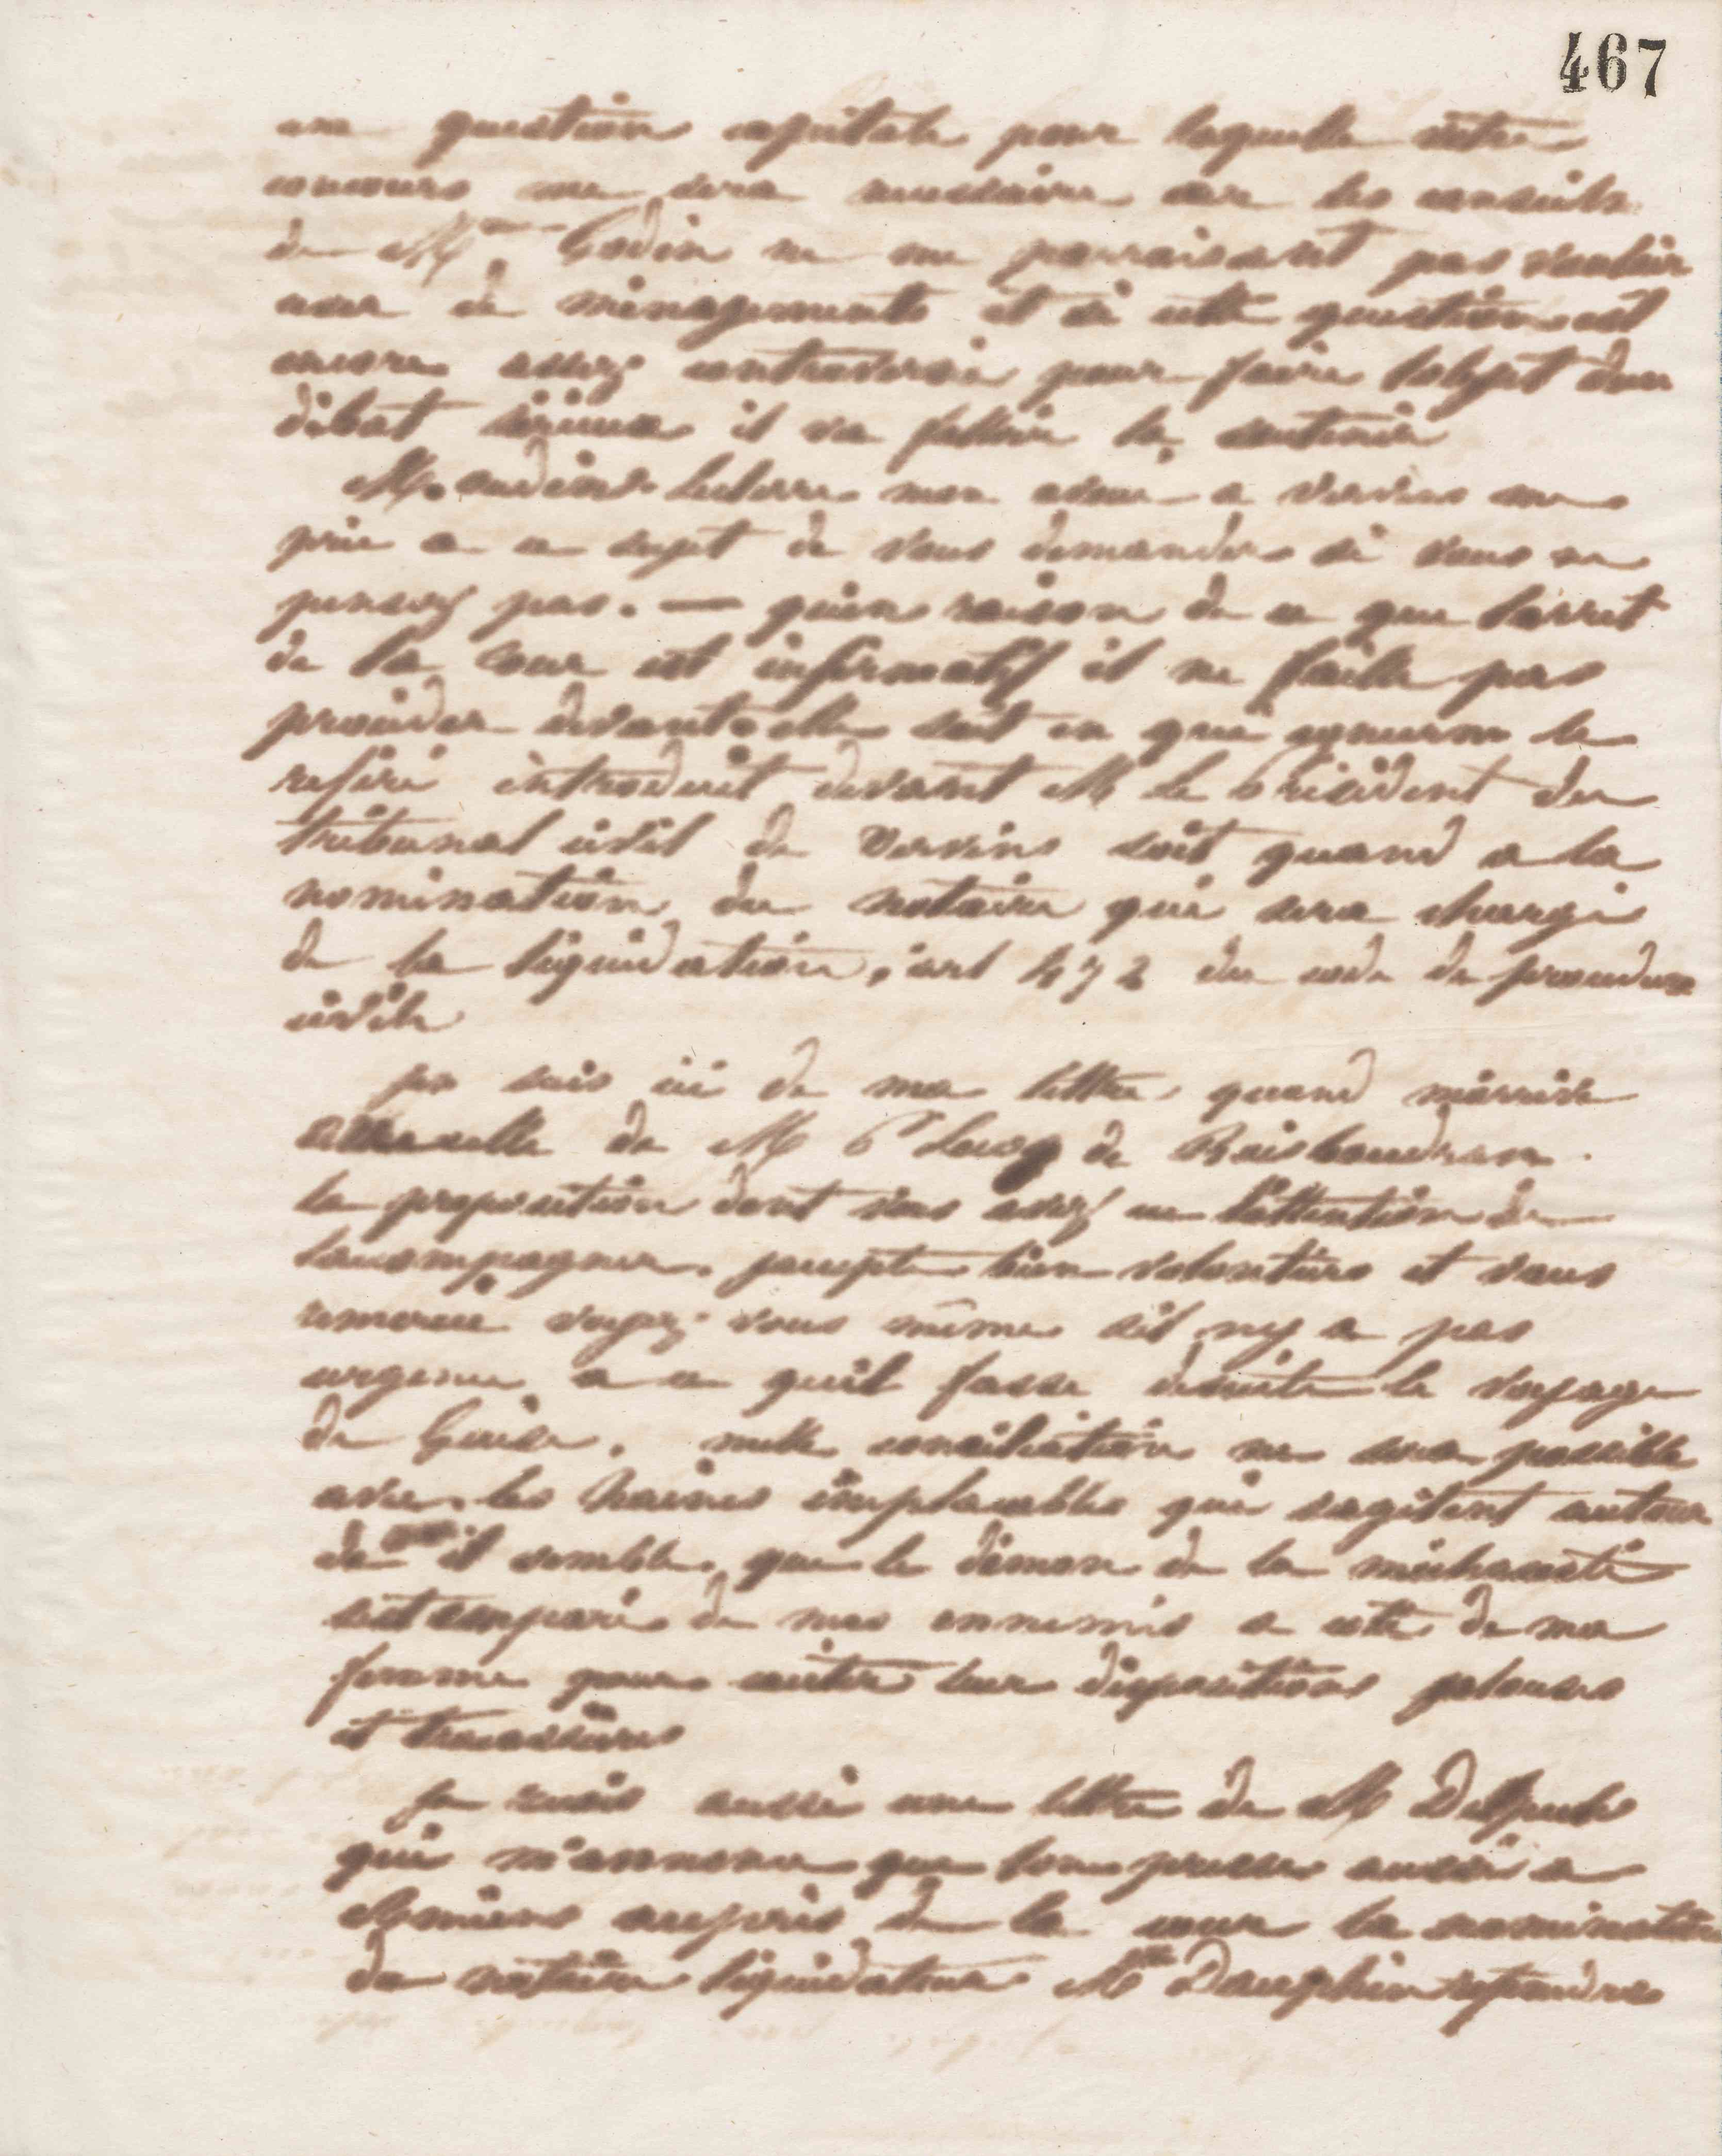 467
une question capitale pour laquelle votre
concours me sera nécessaire car les conseils
de Mme Godin ne me paraissant pas vouloir
user de ménagements et si cette question est
encore assez controversée pour faire lobjet dun
débat sérieux il va falloir la soutenir
M. andint Lefevre mon avoué a Vervins me
prie a ce sujet de vous demander si vous ne
pensez pas. — quen raison de ce que larret
de la cour est infirmatif il ne faille pas
procéder devant elle soit en qui concerne le
référé introduit devant M Le Président du
tribunal civil de Vervins soit quand a la
nomination du notaire qui sera chargé
de la liquidation, art 472 du code de procedure
civile
jen suis ici de ma lettre quand marrive
celle de M Lecoq de Boisbaudran
la proposition dont vous avez eu lattention de
laccompagner. jaccepte bien volontiers et vous
remercie voyez vous même sil ny a pas
urgence a ce quil fasse desuite le voyage
de Guise. nulle conciliation ne sera possible
avec les haines implacables qui sagitent autour
de il semble que le démon de la méchanceté
sest emparé de mes ennemis a coté de ma
femme pour exciter leur dispositions jalouses
et tracassières
Je reçois aussi une lettre de M Delpech
qui m'annonce que lon presse aussi a
Amiens auprès de la cour la nomination
du notaire liquidateur Me Dauphin répondra